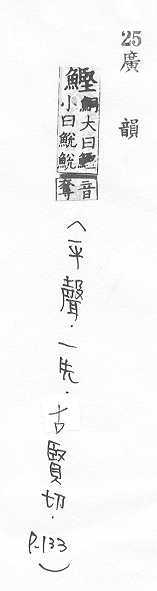 25廣韻
鰹
鮦大曰鰹
小曰鮵鮵
音奪
(平聲.一先.古賢切.P.133)